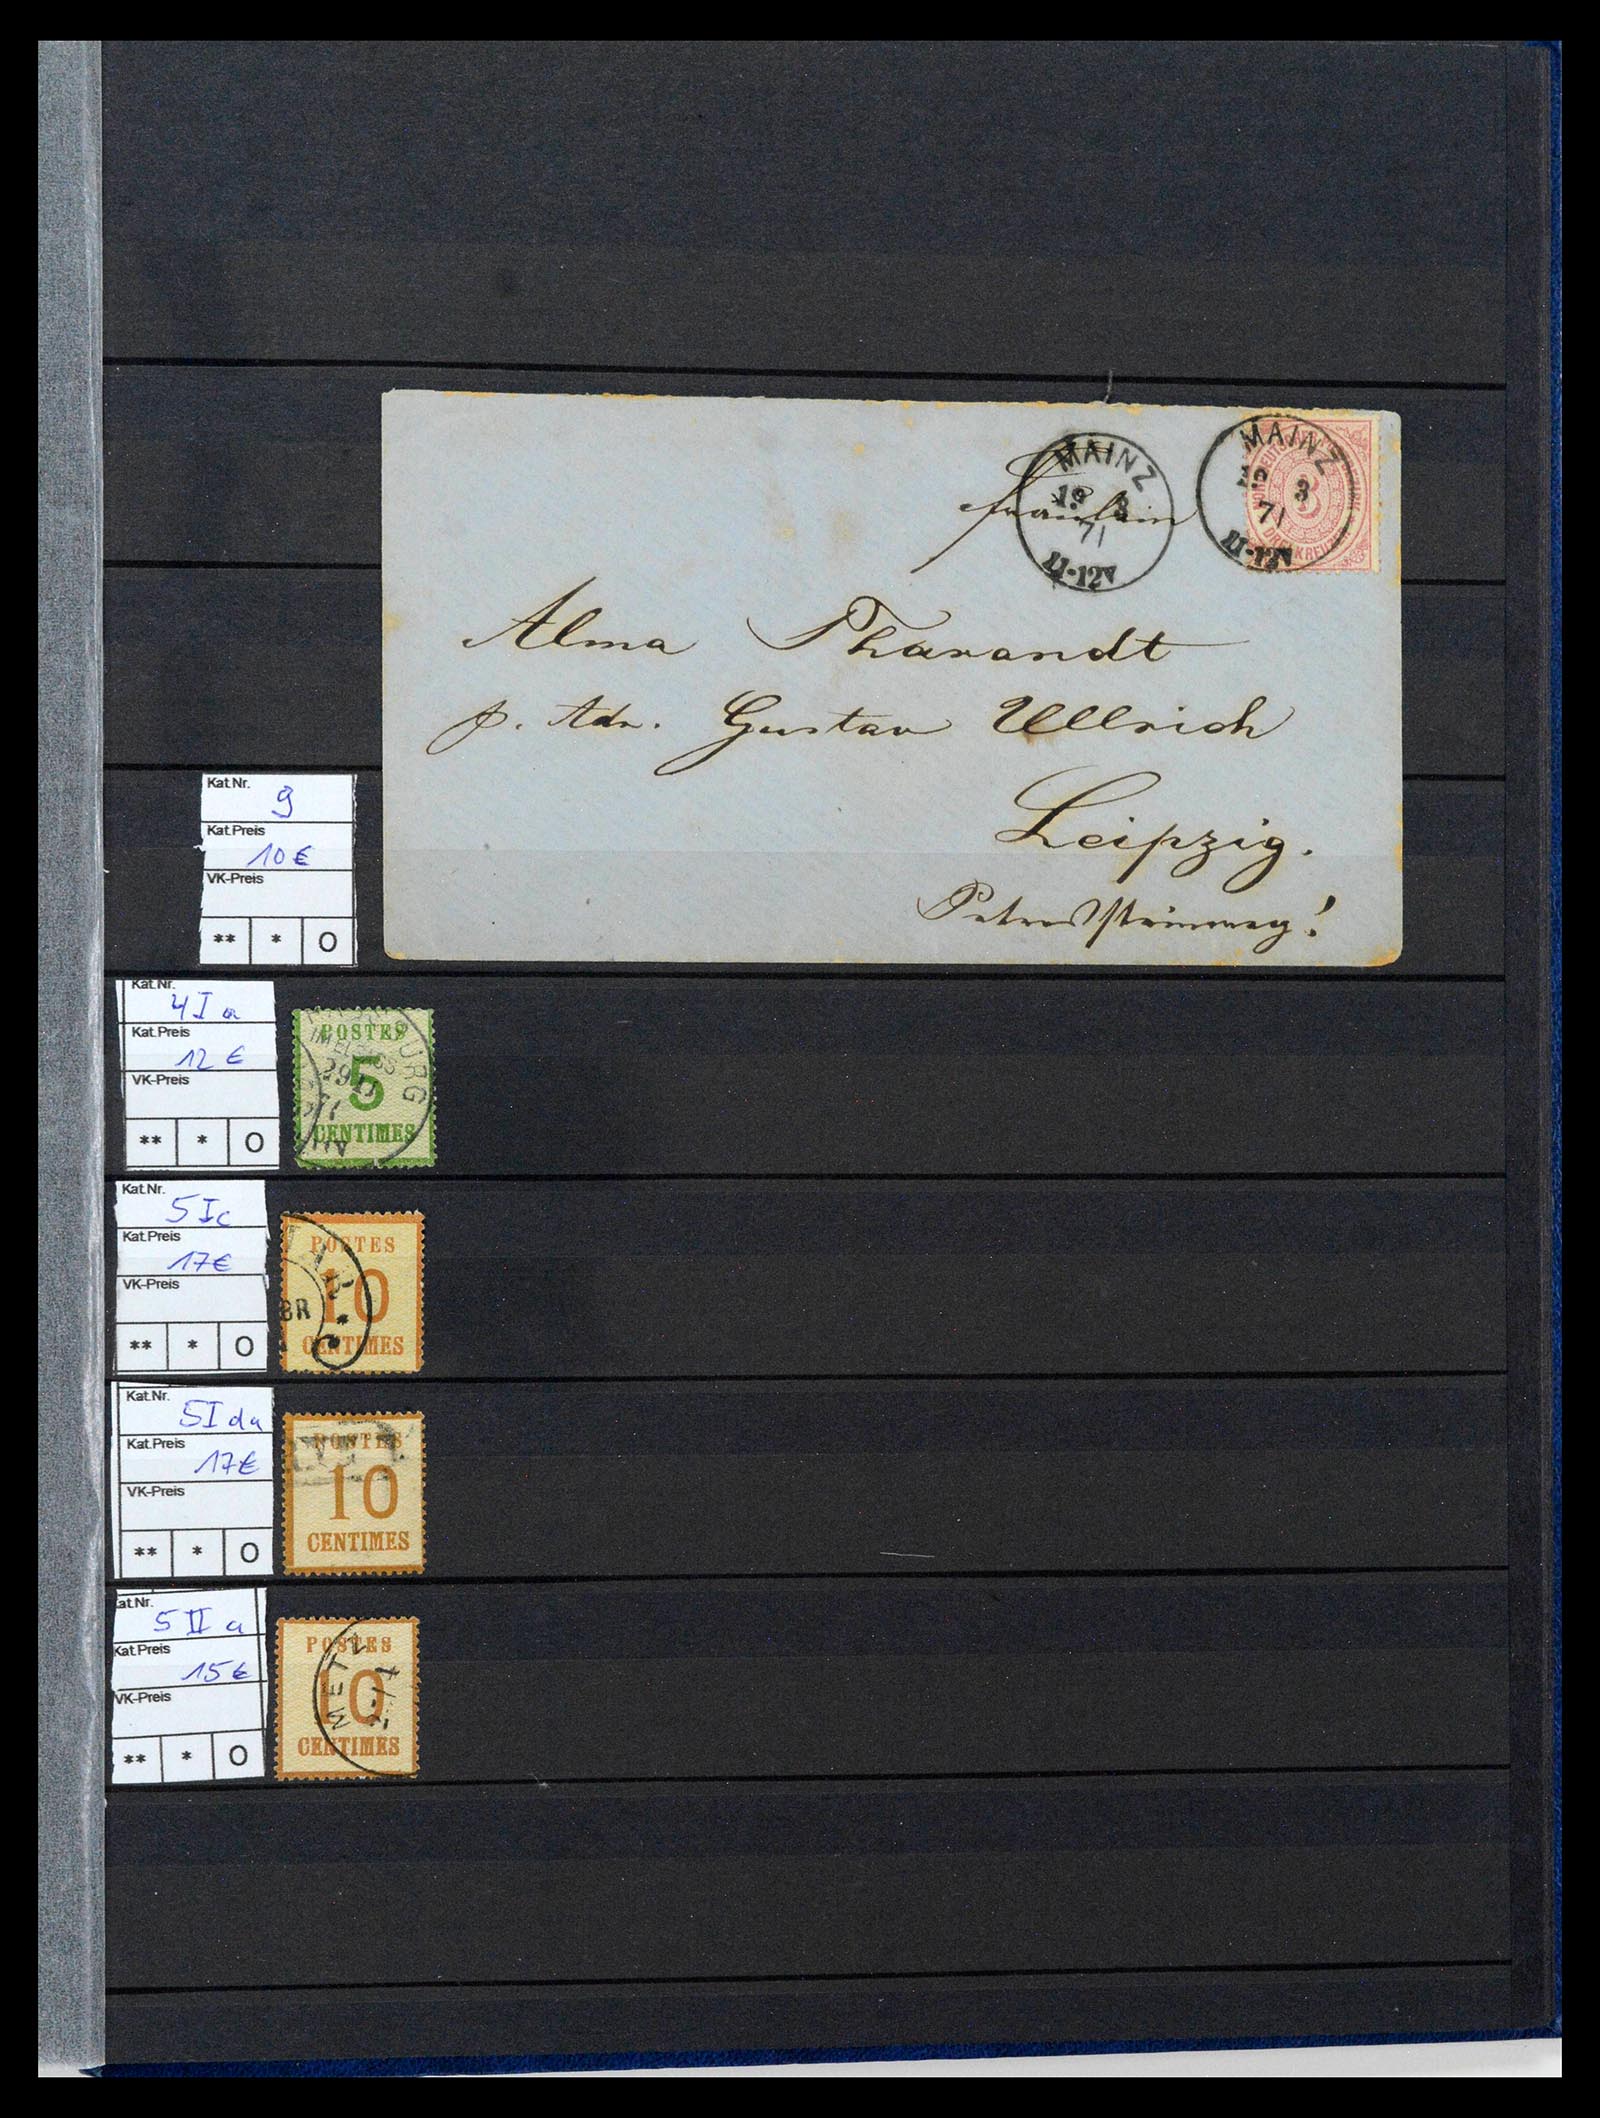 MAINZ
19 3
71
11-12V
MAINZ
3
71
11-12V
3
DREI KREUZER
Fräulein
Alma Tharandt
p. Adr. Gustav Ullrich
Leipzig.
Kat.Nr. 9
Kat.Preis
10 €
VK-Preis
** * O
Kat.Nr.
4 I a
Kat.Preis
12 €
VK-Preis
** * O
POSTES
5
CENTIMES
Kat.Nr.
5 I c
Kat.Preis
17 €
VK-Preis
** * O
POSTES
10
CENTIMES
Kat.Nr.
5 I da
Kat.Preis
17 €
VK-Preis
** * O
POSTES
10
CENTIMES
at.Nr.
5 II a
Kat.Preis
15 €
VK-Preis
** * O
POSTES
10
CENTIMES
METZ